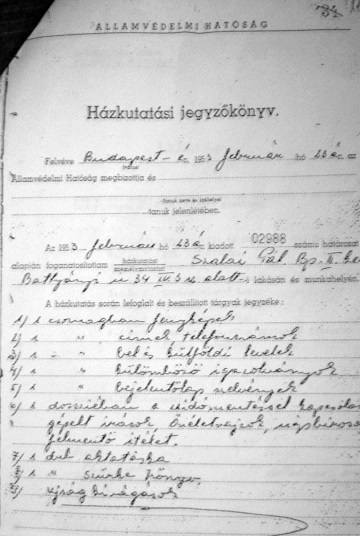 34
ÁLLAMVÉDELMI HATÓSÁG
Házkutatási jegyzőkönyv.
Felvéve Budapest-én, 1953 február hó 23 én az
Államvédelmi Hatóság megbízottja és
tanuk neve és lakhelye
tanuk jelenlétében.
Az 1953 február hó 23 án kiadott 02988 számú határozat
alapján foganatosítottam házkutatást Szalai Pál Bp. II. ker
személymotozást
Batthyány u 34 IV 3 sz alatti lakásán és munkahelyén.
A házkutatás során lefoglalt és beszállított tárgyak jegyzéke:
1/ 1 csomagban fényképek
2/ 1 " címek telefonszámok
3/ 1 " bel és külföldi levelek
4/ 1 " különböző igazolványok
5/ 1 " bejelentőlap szelvények
6/ 1 dossziéban a zsidómentéssel kapcsolat
gépelt írások, önéletrajzok, népbíróság
felmentő ítélet.
7/ 1 drb aktatáska
8/ 1 " szürke könyv
9/ ujság kivágások